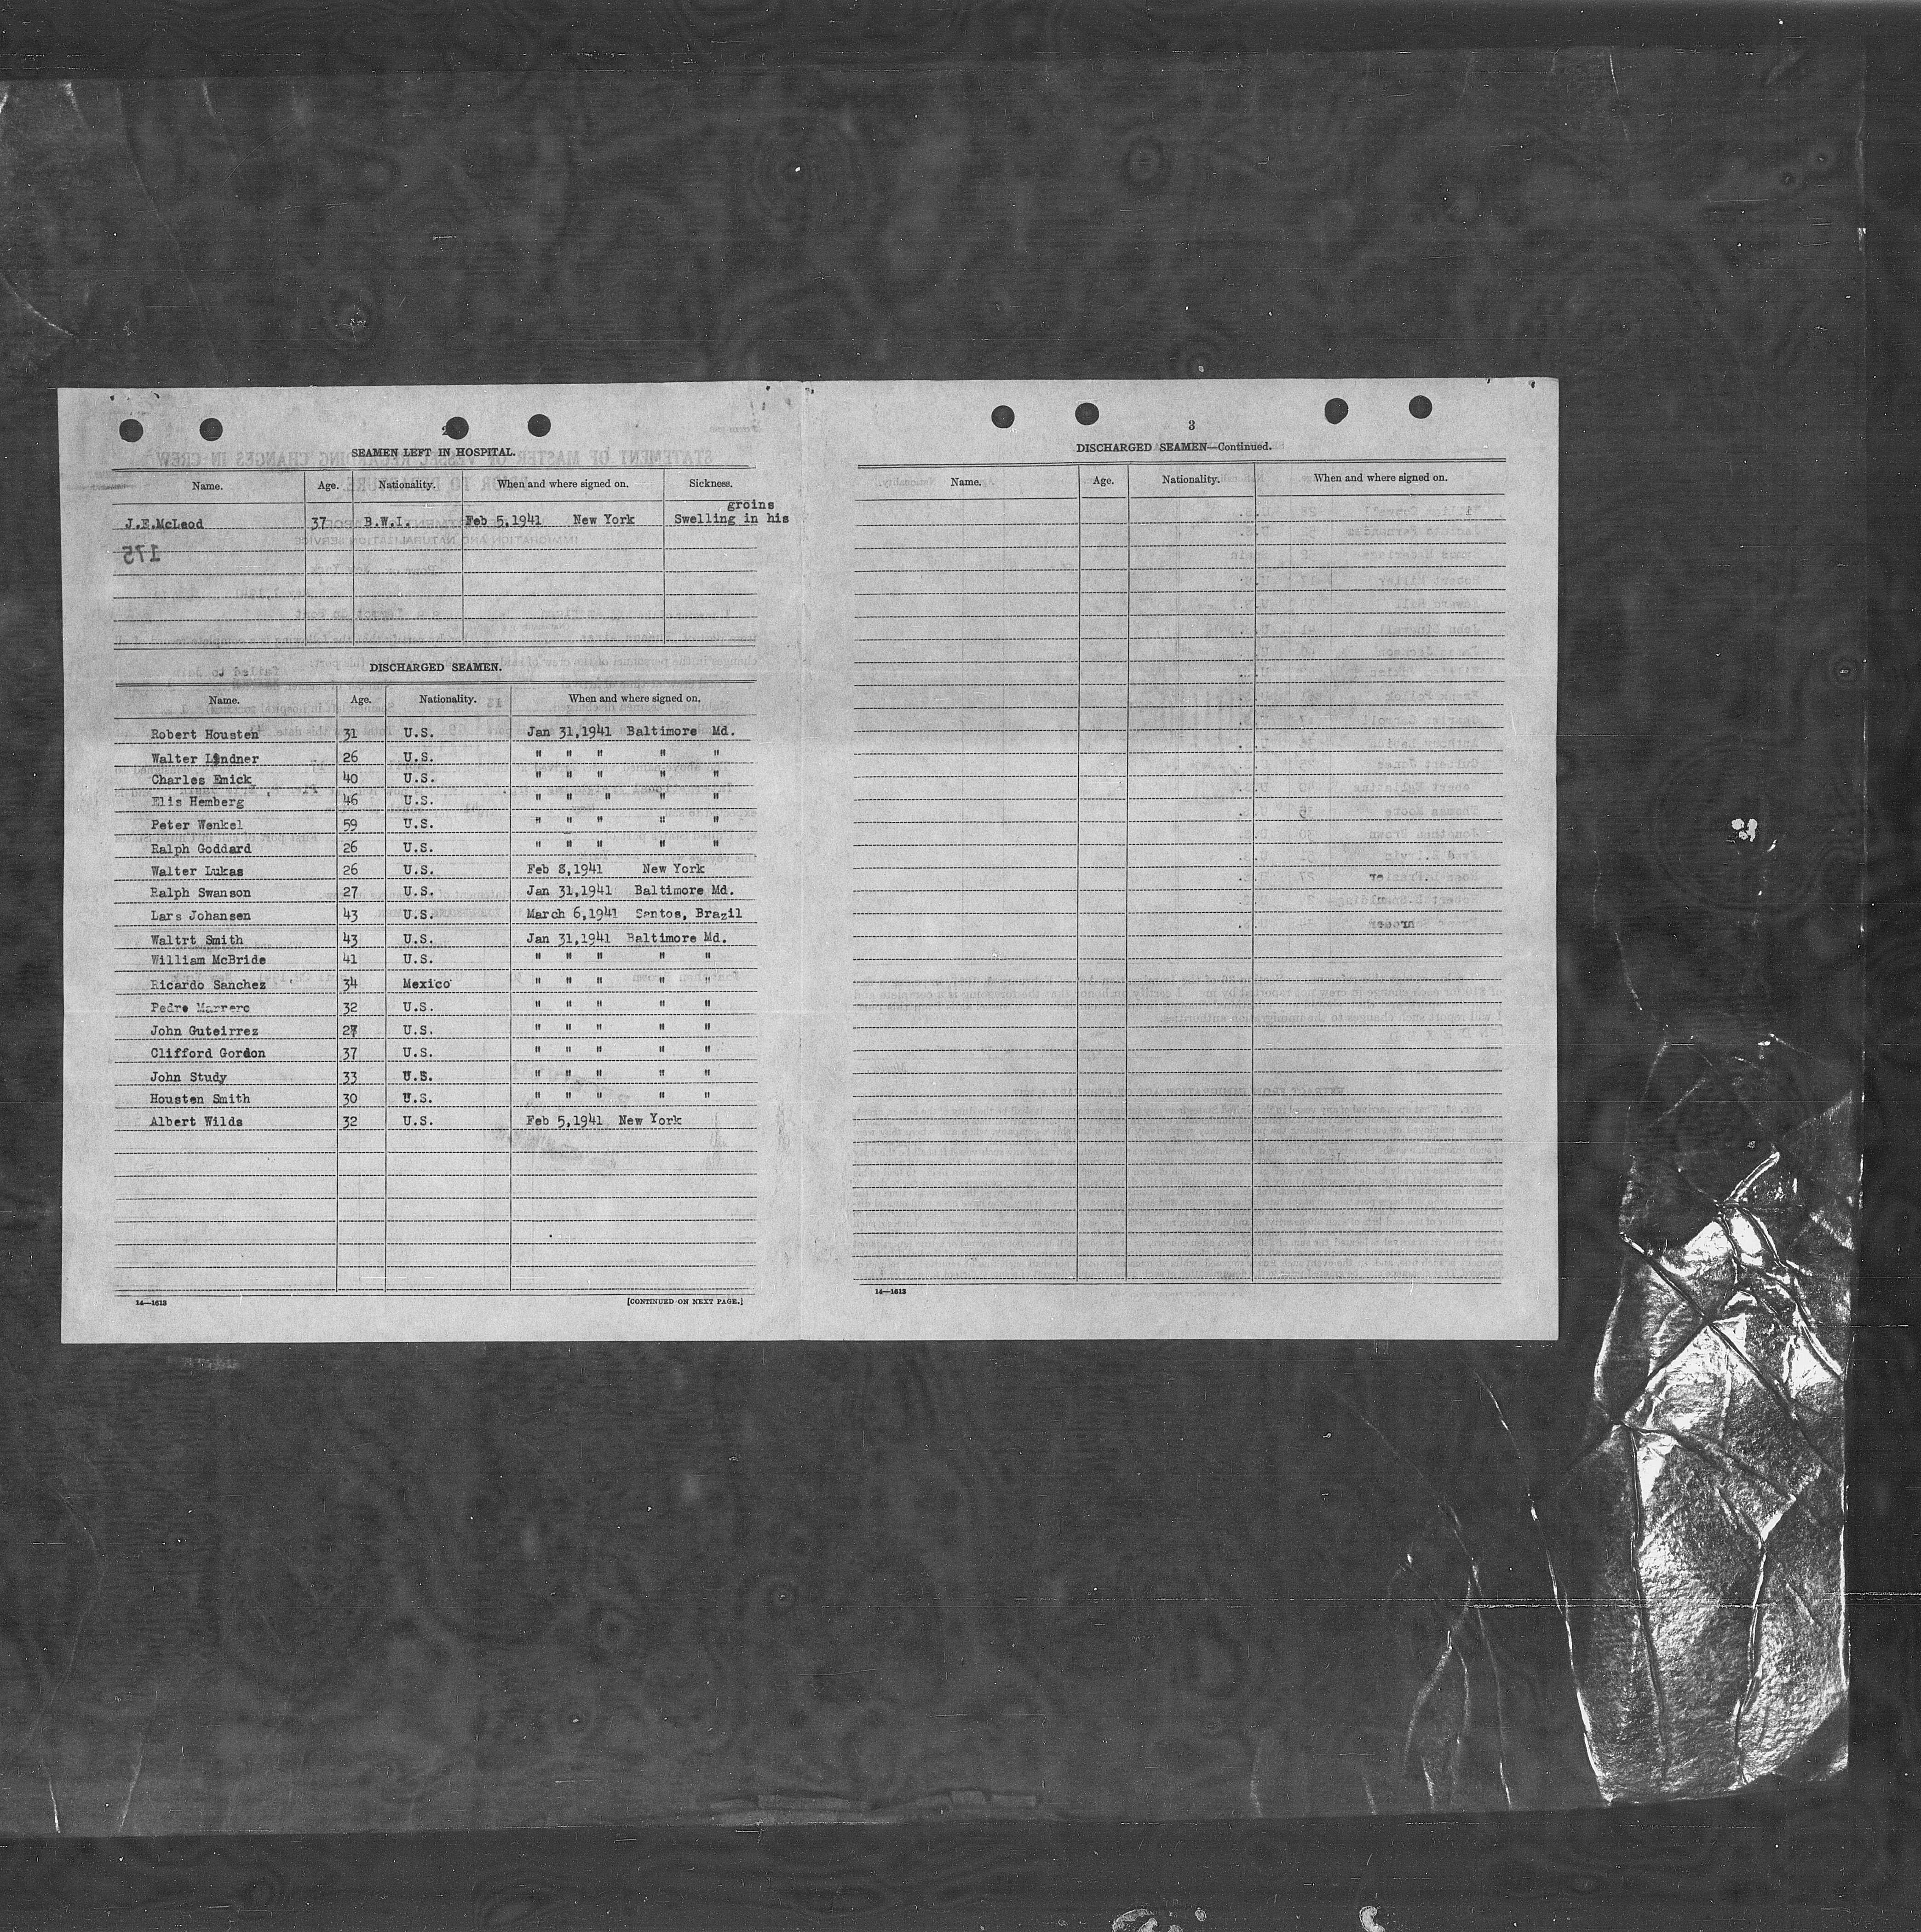 2
SEAMEN LEFT IN HOSPITAL.
Name. Age. Nationality. When and where signed on. Sickness.
groins
J.E.McLeod 37 B.W.I. Feb 5,1941 New York Swelling in his
175
DISCHARGED SEAMEN.
Name. Age. Nationality. When and where signed on.
Robert Housten 31 U.S. Jan 31,1941 Baltimore Md.
Walter Lindner 26 U.S. " " " " "
Charles Emick 40 U.S. " " " " "
Elis Hemberg 46 U.S. " " " " "
Peter Wenkel 59 U.S. " " " " "
Ralph Goddard 26 U.S. " " " " "
Walter Lukas 26 U.S. Feb 8,1941 New York
Ralph Swanson 27 U.S. Jan 31,1941 Baltimore Md.
Lars Johansen 43 U.S. March 6,1941 Santos, Brazil
Waltrt Smith 43 U.S. Jan 31,1941 Baltimore Md.
William McBride 41 U.S. " " " " "
Ricardo Sanchez 34 Mexico " " " " "
Pedro Marrero 32 U.S. " " " " "
John Guteirrez 27 U.S. " " " " "
Clifford Gordon 37 U.S. " " " " "
John Study 33 U.S. " " " " "
Housten Smith 30 U.S. " " " " "
Albert Wilds 32 U.S. Feb 5,1941 New York
14—1613 [CONTINUED ON NEXT PAGE.]
3
DISCHARGED SEAMEN—Continued.
Name. Age. Nationality. When and where signed on.
14—1613